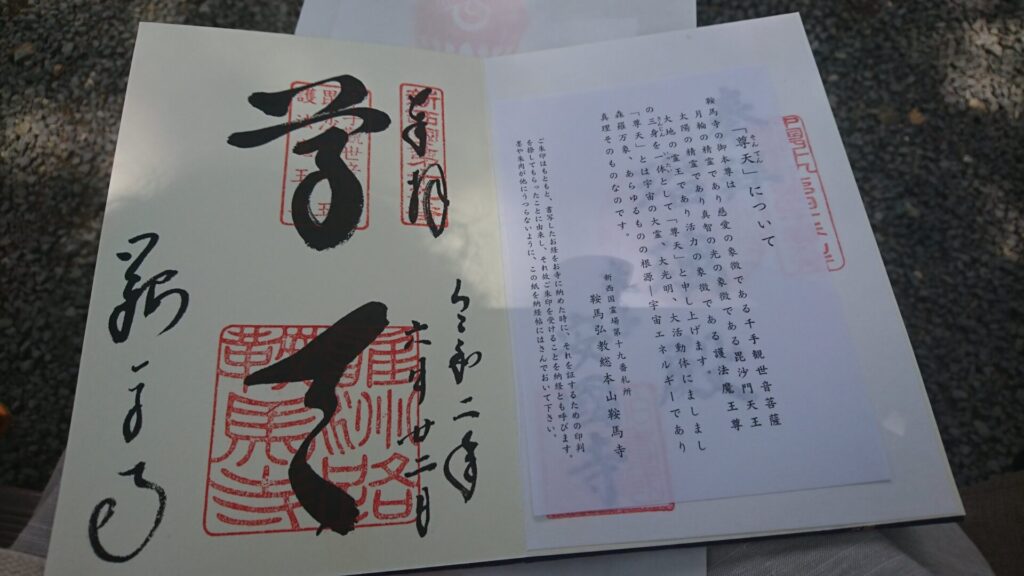 「尊天」について
そんてん
鞍馬寺の御本尊は
月輪の精霊であり慈愛の象徴である千手観世音菩薩
太陽の精霊であり真智の光の象徴である毘沙門天王
大地の霊王であり活力の象徴である護法魔王尊
の三身を一体として「尊天」と申し上げます。
「尊天」とは宇宙の大霊、大光明、大活動体にましまし
森羅万象、あらゆるものの根源―宇宙エネルギーであり
真理そのものなのです。
新西国霊場第十九番札所
鞍馬弘教総本山鞍馬寺
ご朱印はもともと、書写したお経をお寺に納めた時に、それを証するための印判
を捺してもらったことに由来し、それ故ご朱印を受けることを納経とも呼びます。
墨や朱肉が他にうつらないように、この紙を納経帖にはさんでおいて下さい。
奉拝
令和二年
六月廿二日
尊天
雍州路
鞍馬寺
鞍馬寺